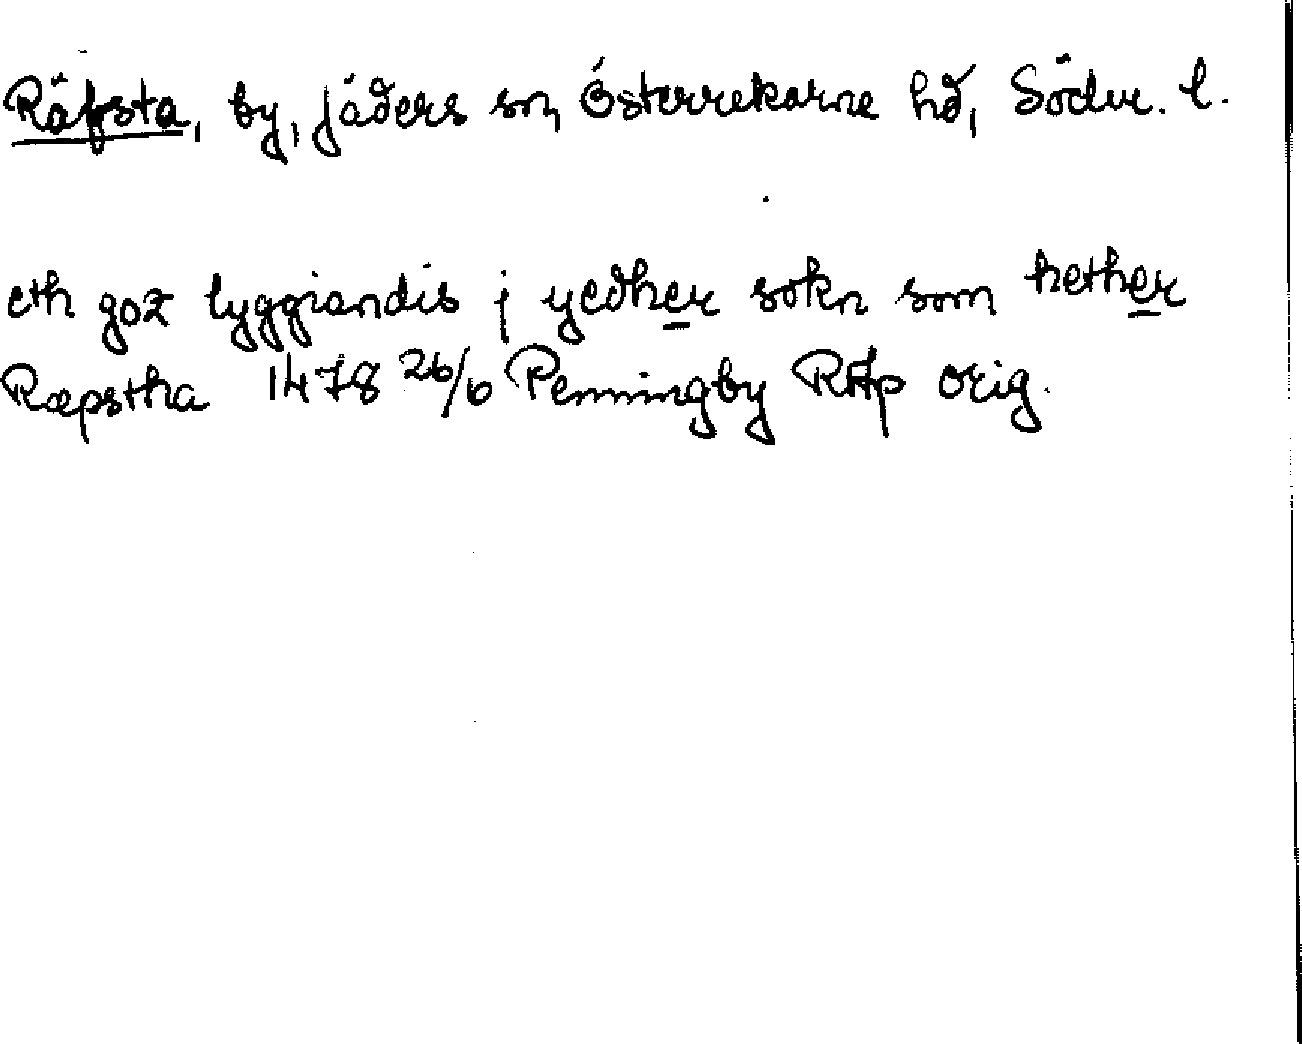 Räfsta, by, Jäders sn, Österrekarne hd, Södm. l.
eth goz lyggiandis j yedher sokn som hether
Ræpstha 1478 26/6 Penningby RAp orig.